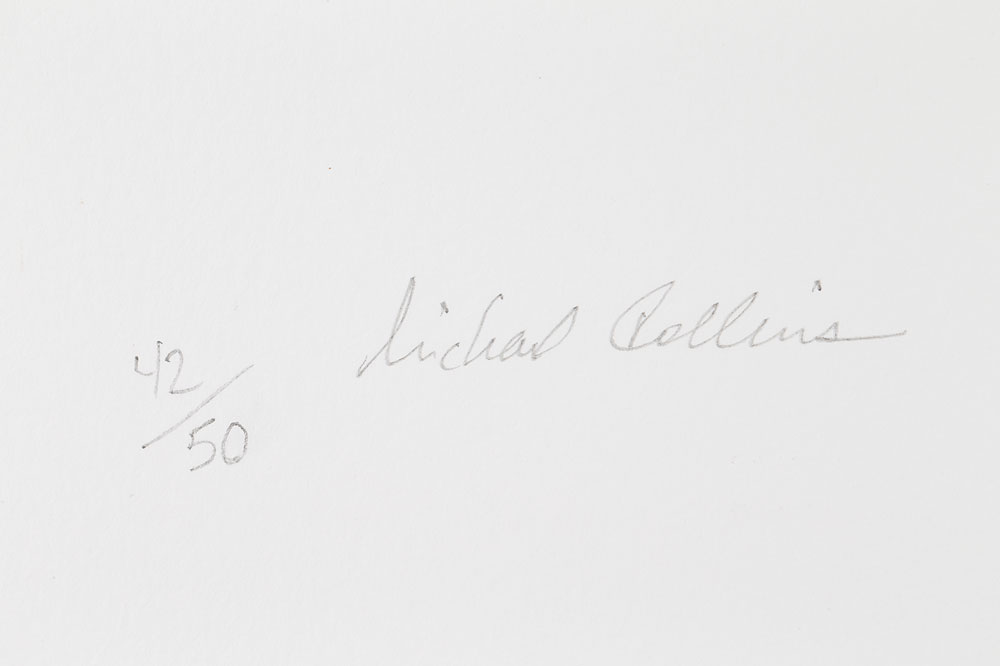 42/50
Michael Collins